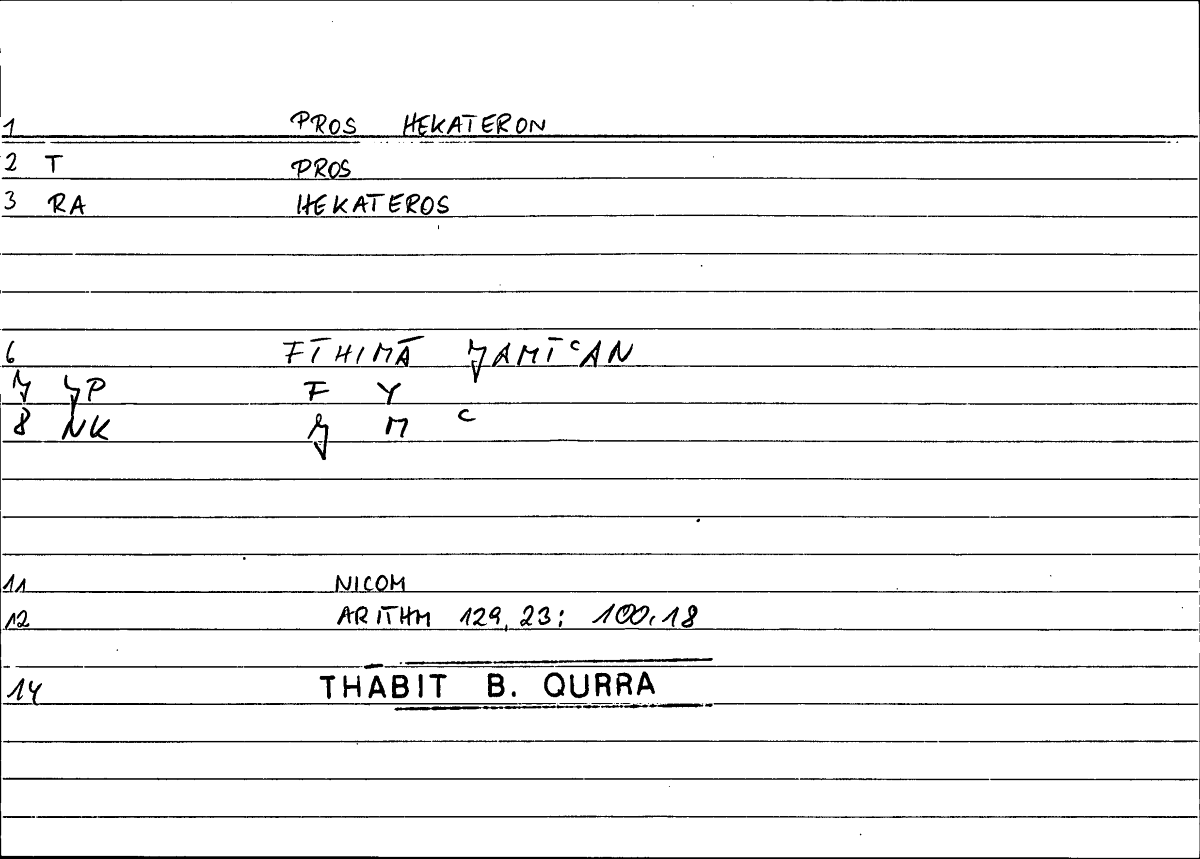 1 PROS HEKATERON
2 T PROS
3 RA HEKATEROS
6 FĪHIMĀ ǦAMĪʿAN
7 F Y
8 NK Ǧ M ʿ
11 NICOM
12 ARITHM 129,23; 100,18
14 THABIT B. QURRA